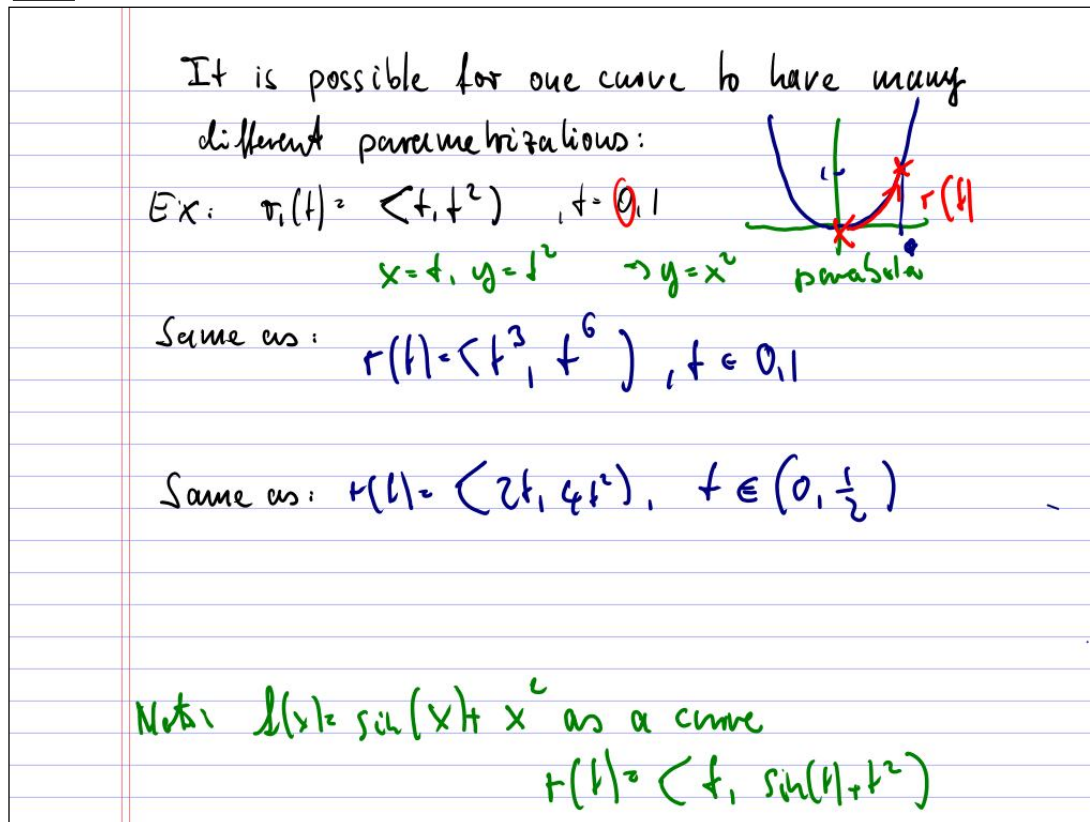 It is possible for one curve to have many
different parametrizations:
Ex: r₁(t) = <t, t²> , t = 0,1
r(t)
x = t, y = t² ⇒ y = x² parabola
Same as: r(t) = <t³, t⁶> , t ∈ 0,1
Same as: r(t) = <2t, 4t²>, t ∈ (0, 1/2)
Note: f(x) = sin(x) + x² as a curve
r(t) = <t, sin(t) + t²>